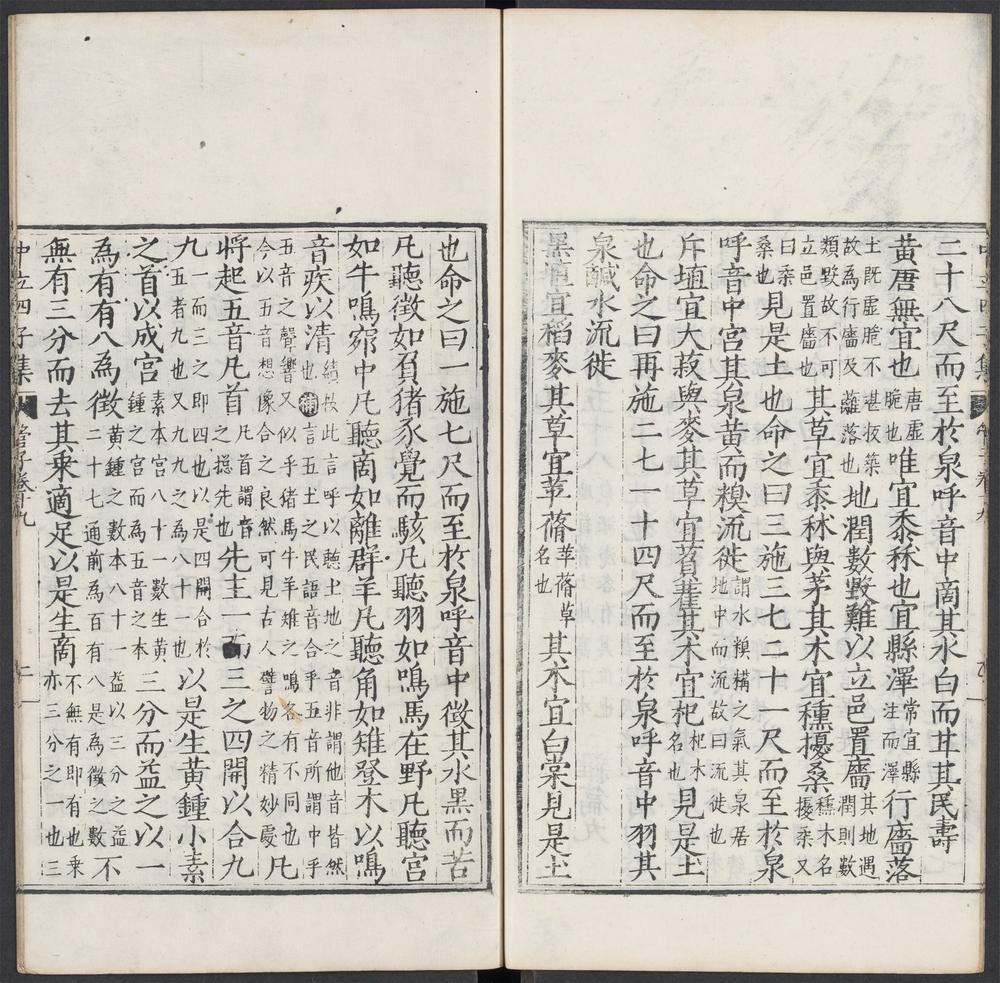 二十八尺而至於泉呼音中商其水白而甘其民壽
黄唐無宜也唐虛脆也唯宜黍秫也宜縣澤常宜縣注而澤行廧落
土既虛脆不堪板築故為行廧及蘺落也地潤數毀難以立邑置廧其地遇潤則數
類毀故不可立邑置廧也其草宜黍秫與茅其木宜櫄擾桑櫄木名擾桑又
曰桑桑也見是土也命之曰三施三七二十一尺而至於泉
呼音中宮其泉黄而糗流徙謂水糗糒之氣其泉居地中而流故曰流徙也
斥埴宜大菽與麥其草宜萯雚其木宜杞杞木名也見是土
也命之曰再施二七一十四尺而至於泉呼音中羽其
泉鹹水流徙
黑埴宜稻麥其草宜苹蓨苹蓨草名也其木宜白棠見是土
也命之曰一施七尺而至於泉呼音中徵其水黑而苦
凡聽徵如負猪豕覺而駭凡聽羽如鳴馬在野凡聽宮
如牛鳴窌中凡聽商如離群羊凡聽角如雉登木以鳴
音疾以清績按此言呼以聽土地之音非謂他音皆然也補言五土之民語音合乎五音所謂中乎
五音之聲響又似乎猪馬牛羊雉之鳴各有不同也今以五音想像合之良然可見古人譬物之精妙處凡
將起五音凡首凡謂音之揔先也先主一而三之四開以合九
九一而三之即四也以是四開合於九五者九也又九九之為八十一也以是生黄鍾小素
之首以成宮素本宮八十一數生黄鍾之宮而為五音之本三分而益之以一
為百有八為徵黄鍾之數本八十一益以三分之益二十七通前為百有八是為徵之數不
無有三分而去其乘適足以是生商不無有即有也乗亦三分之一也三
中立四子集
管子卷十九